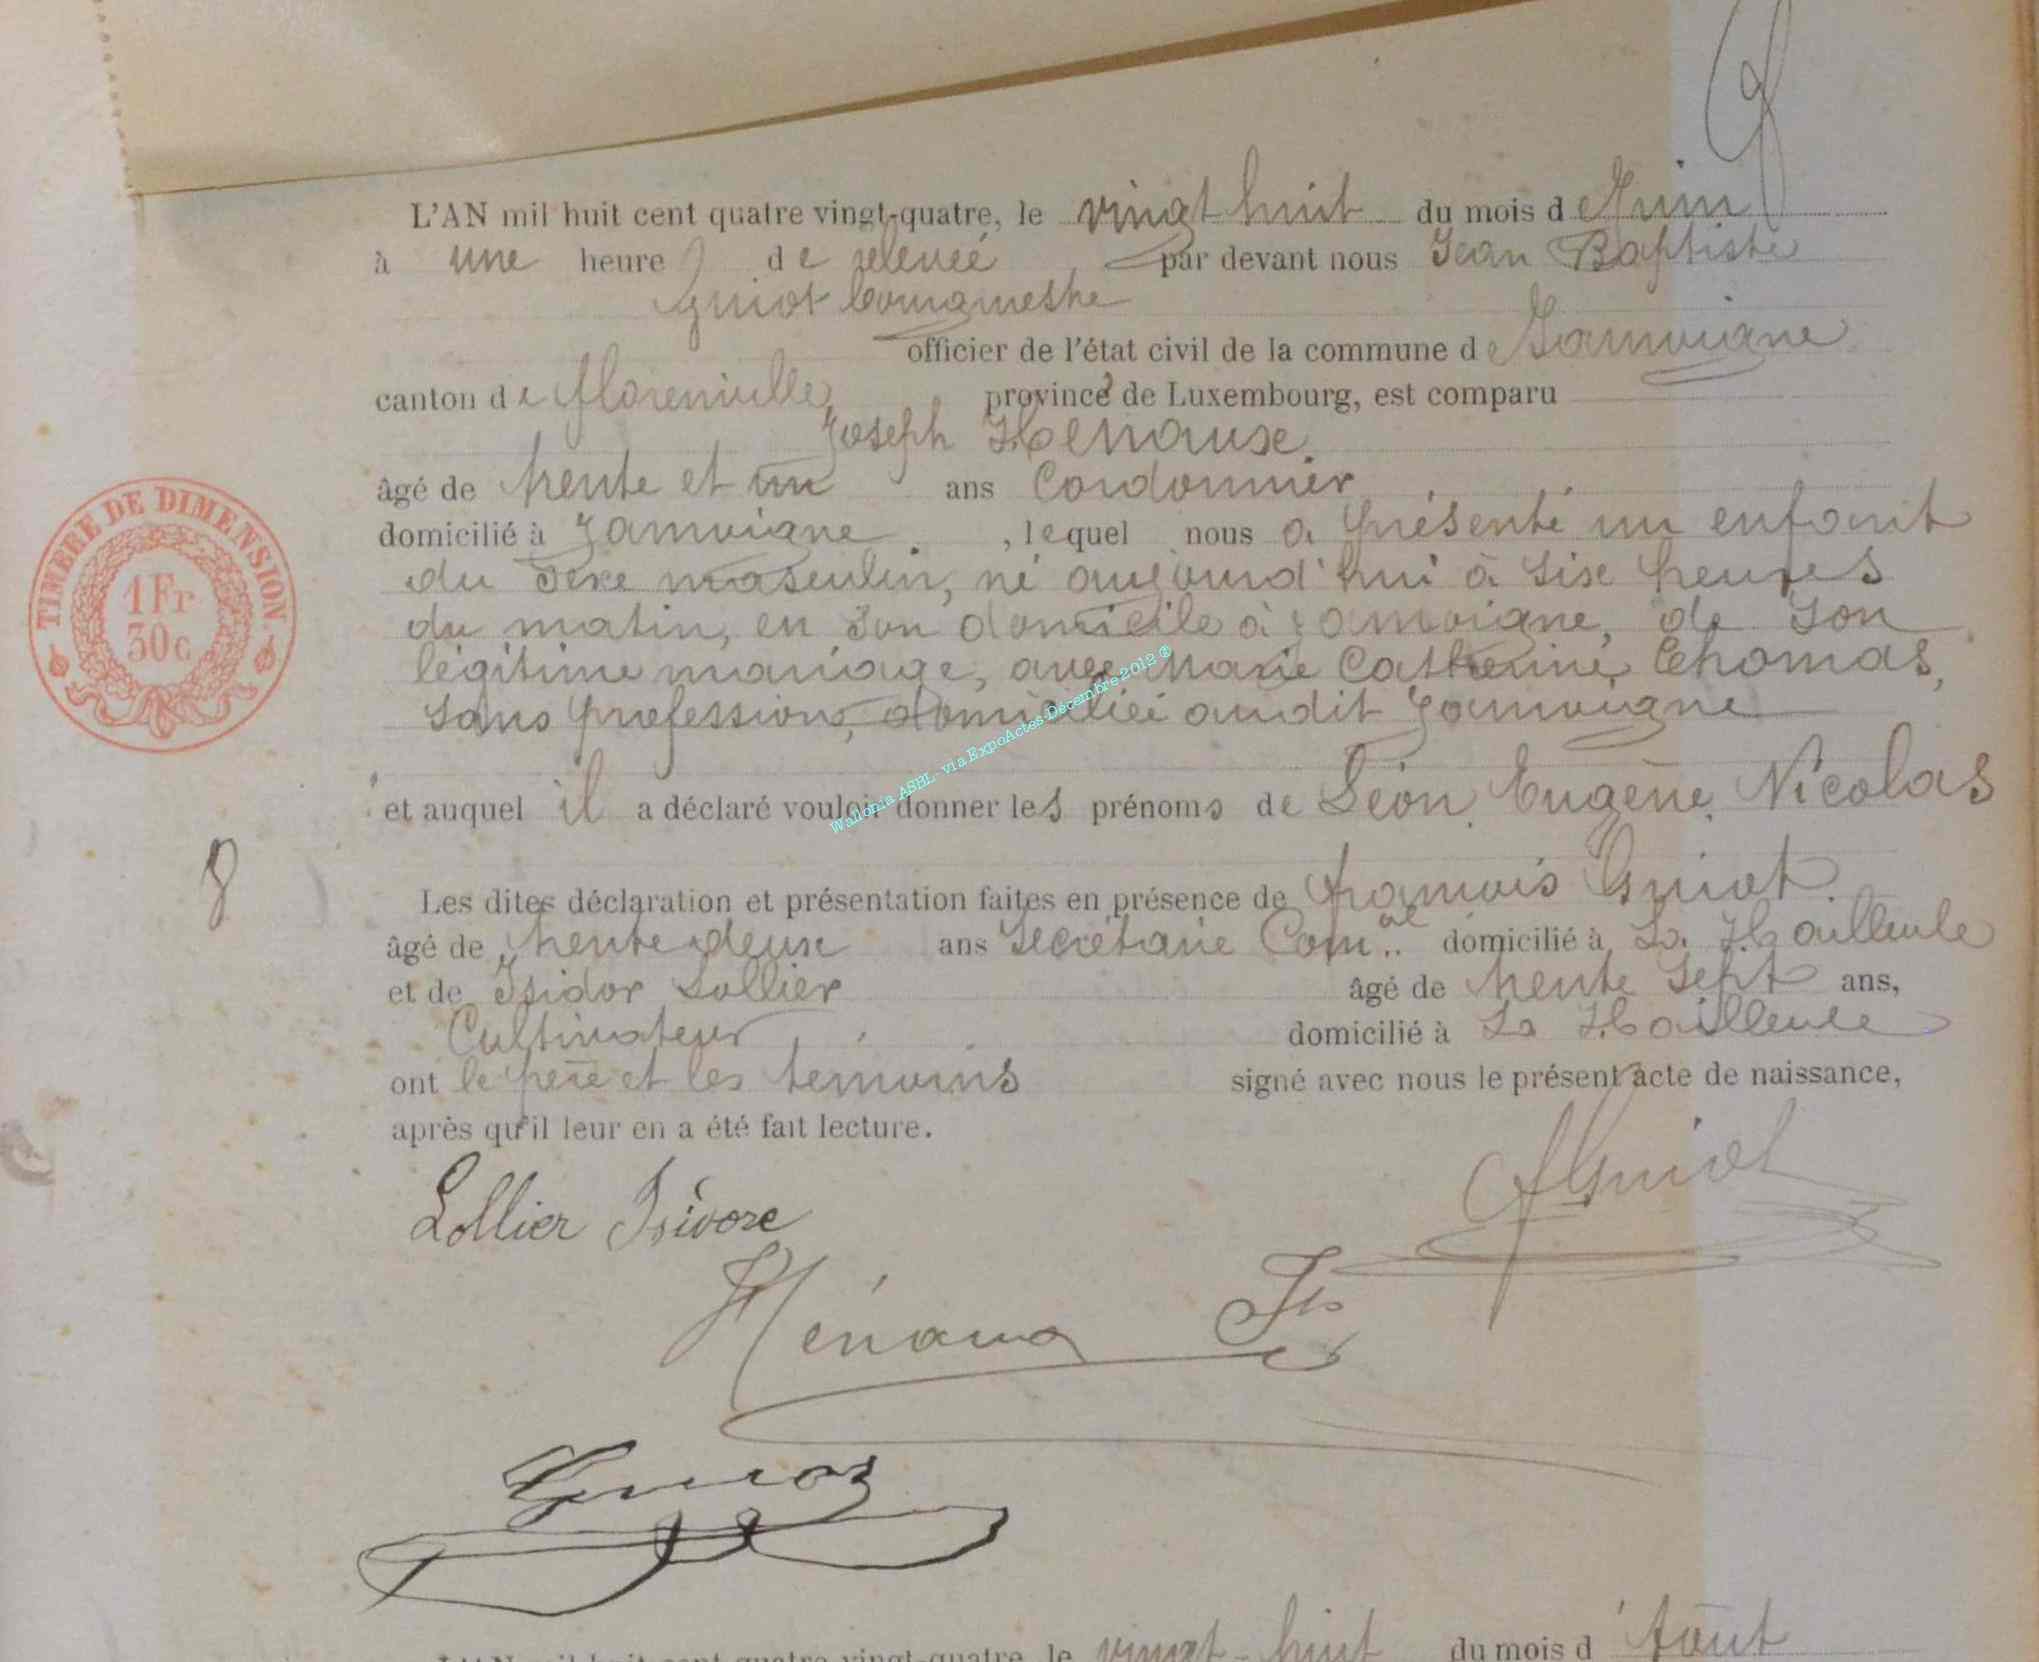 L'AN mil huit cent quatre vingt-quatre, le vingt huit du mois de Juin
à une heure de relevée, par devant nous Jean Baptiste
Guiot bourgmestre
officier de l'état civil de la commune de Jamoigne
canton de florenville province de Luxembourg, est comparu
Joseph Henaux.
âgé de trente et un ans Cordonnier
domicilié à Jamoigne, lequel nous a présenté un enfant
du sexe masculin, né aujourd'hui à six heures
du matin, en son domicile à Jamoigne, de son
légitime mariage, avec Marie Catherine Thomas,
sans profession, domiciliée audit Jamoigne
et auquel il a déclaré vouloir donner les prénoms de Léon, Eugène, Nicolas
Les dites déclaration et présentation faites en présence de françois Guiot.
âgé de trente deux ans Secrétaire Com.al domicilié à La Hailleule
et de Isidor Lollier âgé de trente sept ans,
Cultivateur domicilié à La Hailleule
ont le père et les témoins signé avec nous le présent acte de naissance,
après qu'il leur en a été fait lecture.
Lollier Isidore
FGuiot
Hénaux Jh
Guiot
8
TIMBRE DE DIMENSION
1Fr
30c
Wallonia ASBL - via ExpoActes-Decembre 2012 ®
L'AN mil huit cent quatre vingt-quatre, le vingt-huit du mois d'Août